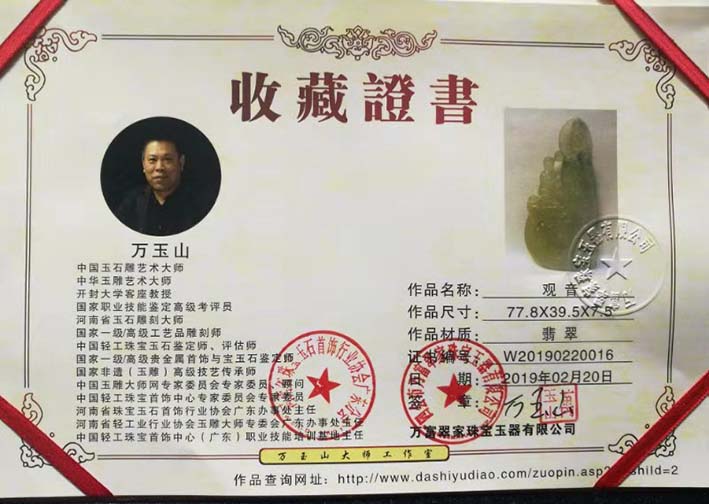 收藏證書
万玉山
中国玉石雕艺术大师
中华玉雕艺术大师
开封大学客座教授
国家职业技能鉴定高级考评员
河南省玉石雕刻大师
国家一级/高级工艺品雕刻师
中国轻工珠宝玉石鉴定师、评估师
国家一级/高级贵金属首饰与宝玉石鉴定师
国家非遗（玉雕）高级技艺传承师
中国玉雕大师网专家委员会专家委员、顾问
中国轻工珠宝首饰中心专家委员会专家委员
河南省珠宝玉石首饰行业协会广东办事处主任
河南省轻工业行业协会玉雕大师专委会广东办事处主任
中国轻工珠宝首饰中心（广东）职业技能培训基地主任
作品名称: 观音
作品尺寸: 77.8X39.5X7.5
作品材质: 翡翠
证书编号: W20190220016
日期: 2019年02月20日
签章: 万玉山
万富翠家珠宝玉器有限公司
万玉山大师工作室
作品查询网址: http://www.dashiyudiao.com/zuopin.asp?dashiId=2